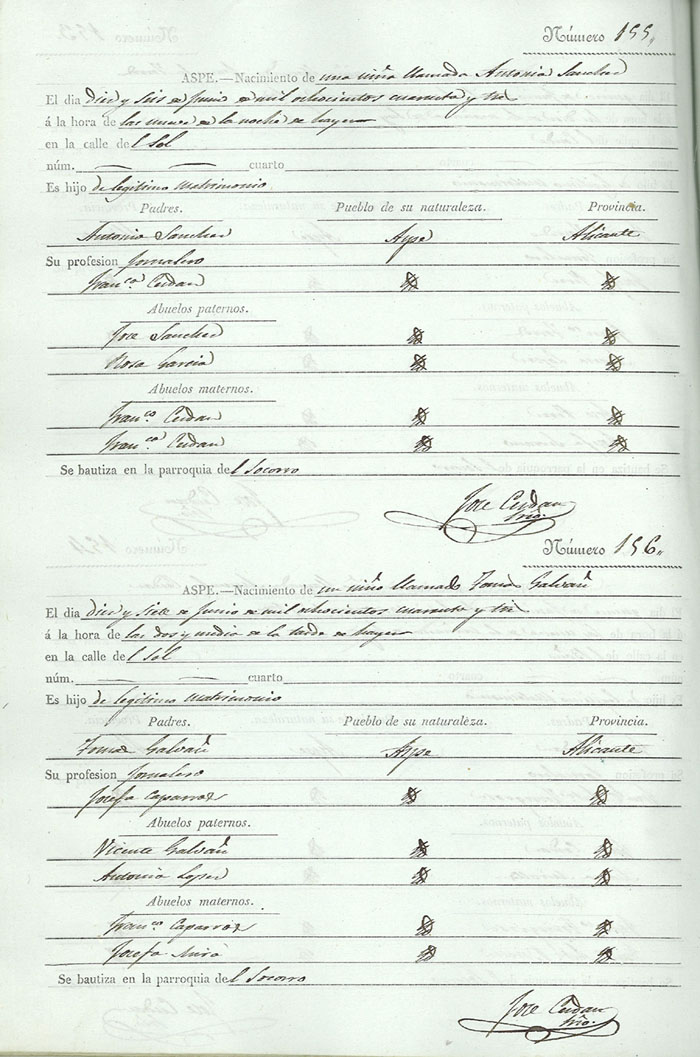 Número 155,,
ASPE.—Nacimiento de una niña llamada Antonia Sanchez
El dia diez y seis de Junio de mil ochocientos cuarenta y tres
á la hora de las nueve de la noche de hayer
en la calle del Sol
núm. — — cuarto
Es hijo de legitimo Matrimonio
Padres. Pueblo de su naturaleza. Provincia.
Antonio Sanchez Aspe Alicante
Su profesion Jornalero
Fran.ca Cerdan
Abuelos paternos.
Jose Sanchez
Rosa Garcia
Abuelos maternos.
Fran.co Cerdan
Fran.ca Cerdan
Se bautiza en la parroquia del Socorro
Jose Cerdan
Srio.
Número 156,,
ASPE.—Nacimiento de un niño llamado Tomas Galvañ
El dia diez y siete de Junio de mil ochocientos cuarenta y tres
á la hora de las dos y media de la tarde de hayer
en la calle del Sol
núm. — — cuarto
Es hijo de legitimo Matrimonio
Padres. Pueblo de su naturaleza. Provincia.
Tomas Galvañ Aspe Alicante
Su profesion Jornalero
Josefa Caparros
Abuelos paternos.
Vicente Galvañ
Antonia Lopez
Abuelos maternos.
Fran.co Caparros
Josefa Miró
Se bautiza en la parroquia del Socorro
Jose Cerdan
Srio.